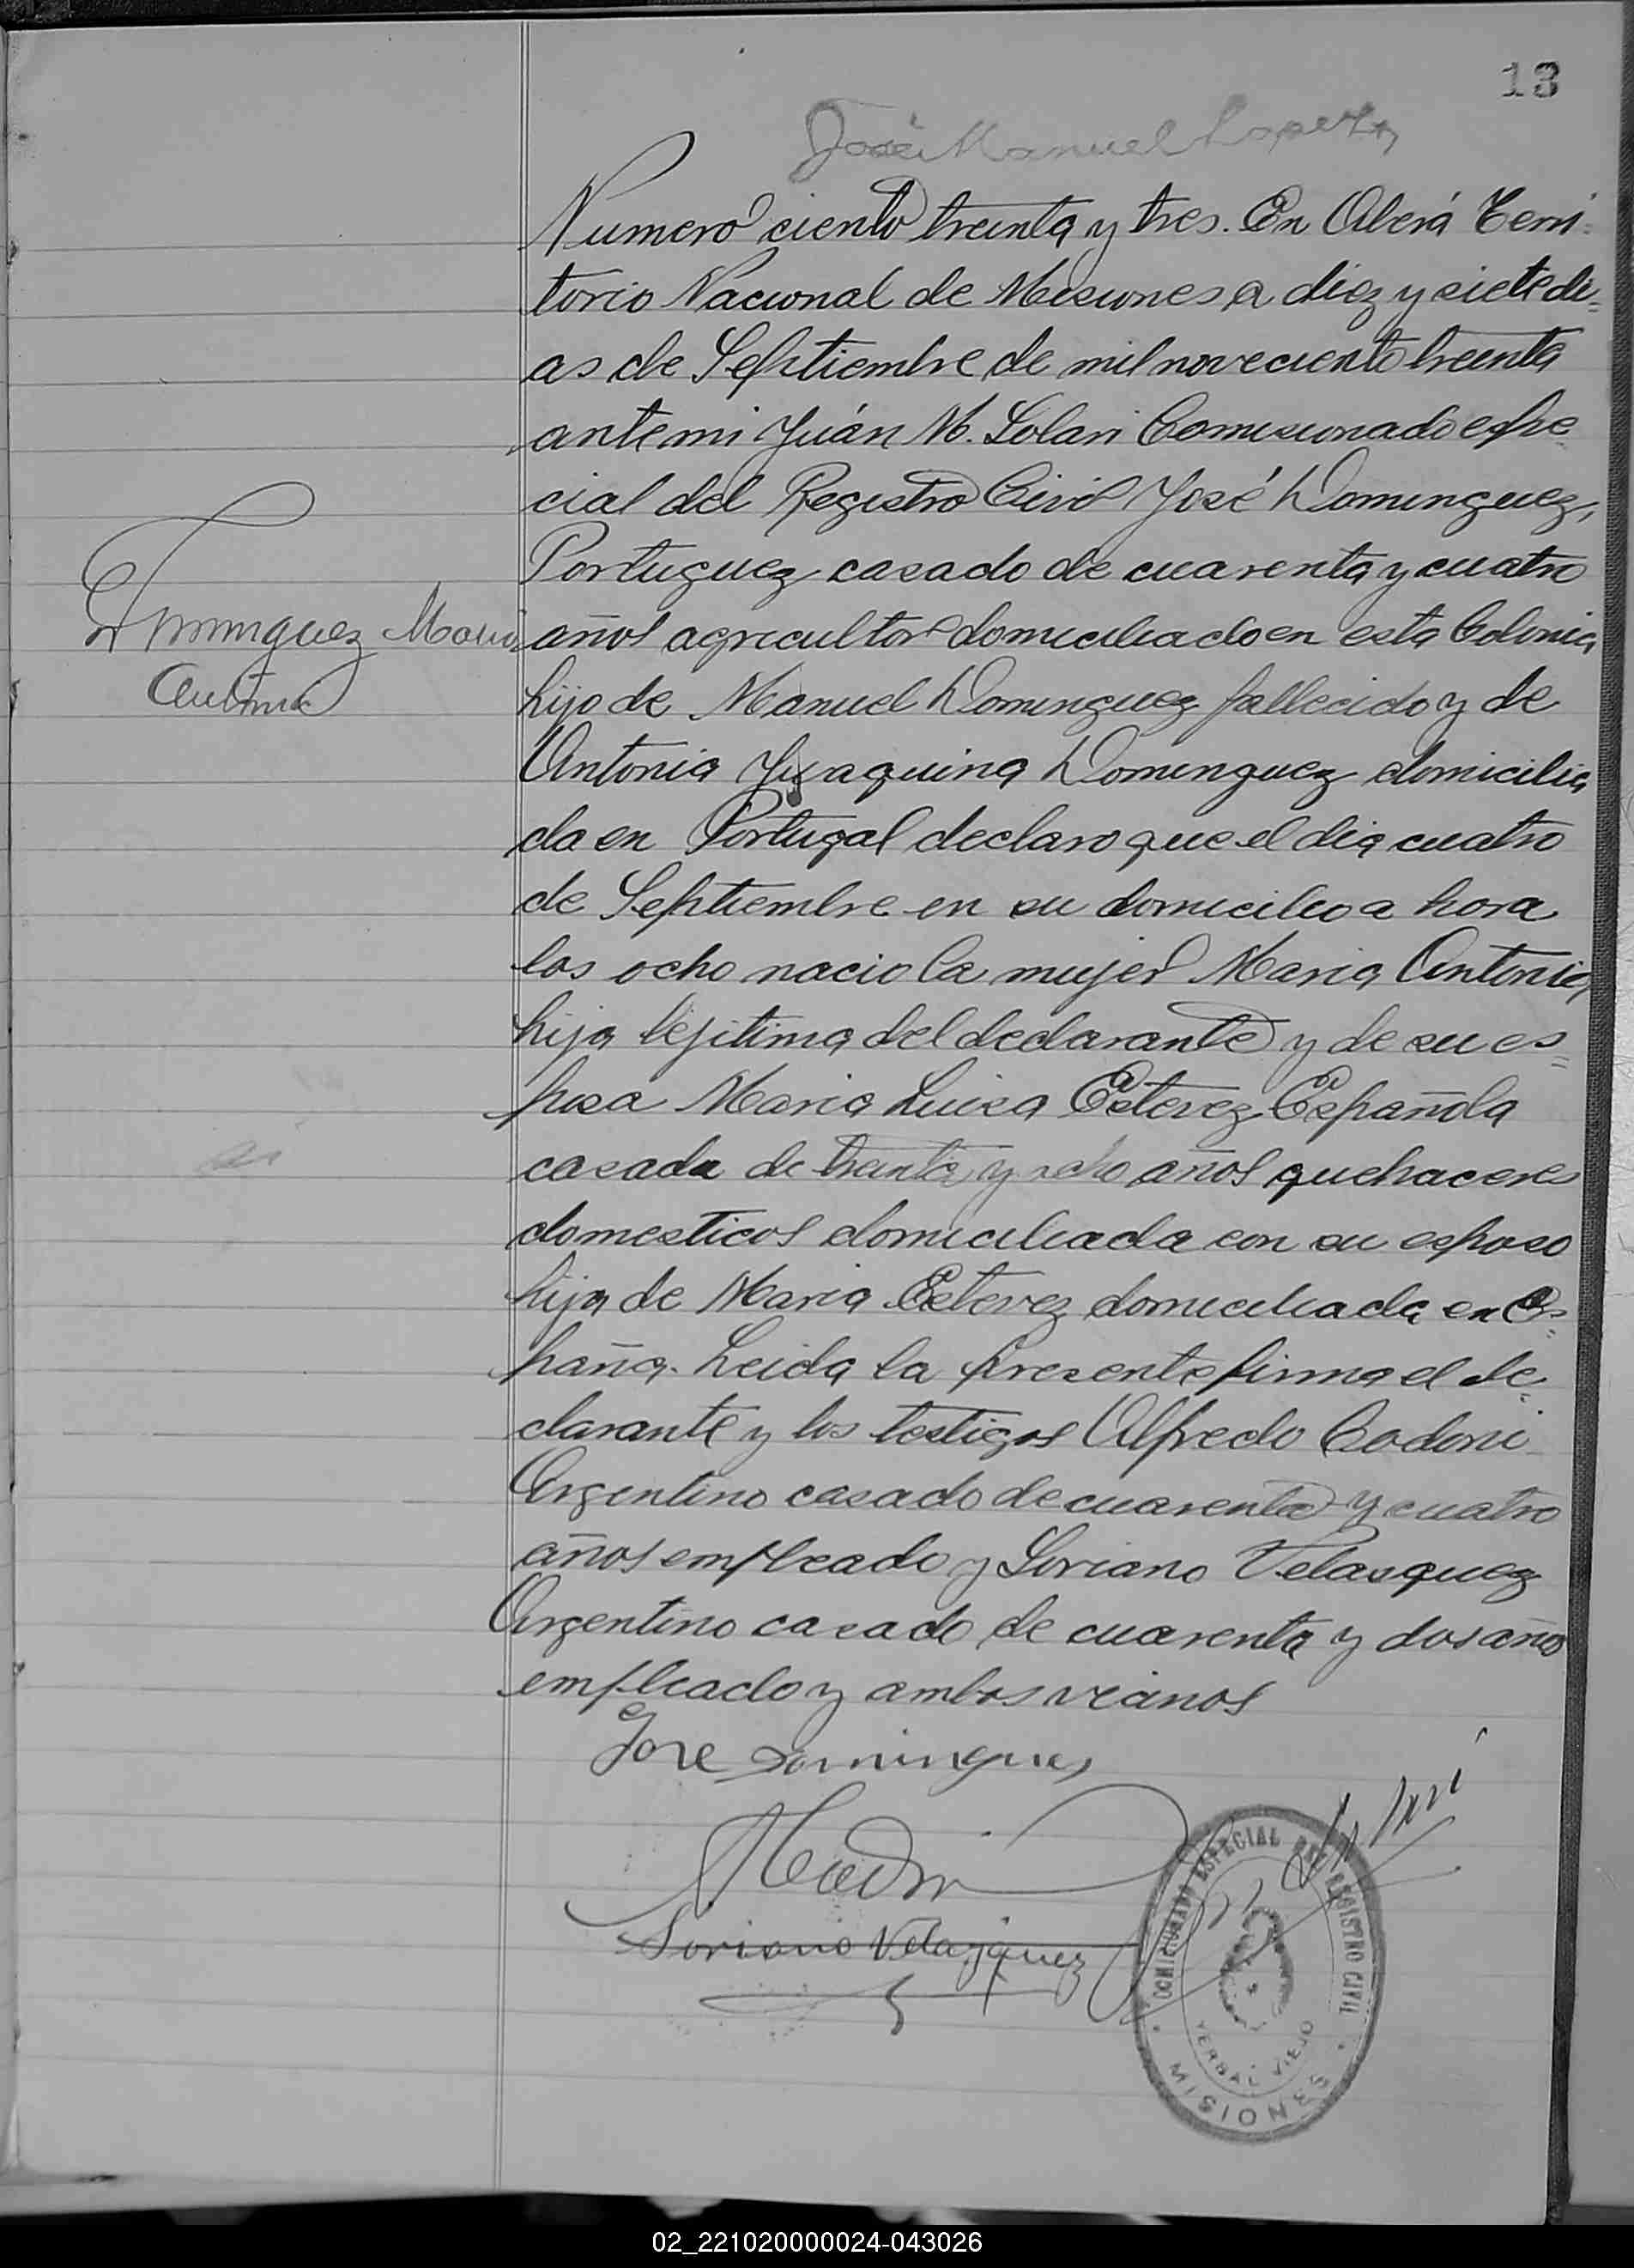 13
José Manuel
Numero ciento treinta y tres. En Oberá Terri-
torio Nacional de Misiones a diez y siete di=
as de Septiembre de mil noveciento treinta
ante mi Juán M. Solari Comisionado espe
cial del Registro Civil José Dominguez,
Portuguez casado de cuarenta y cuatro
años agricultor domiciliado en esta Colonia
Dominguez Maria
Antonia
hijo de Manuel Dominguez fallecido y de
Antonia Juaquina Dominguez domicilia
da en Portugal declaro que el dia cuatro
de Septiembre en su domicilio a hora
las ocho nacio la mujer Maria Antonia
hija lejitima del declarante y de su es=
posa Maria Luisa Estevez Española
casada de treinta y ocho años quehaceres
domesticos domiciliada con su esposo
hija de Maria Estevez domiciliada en Es=
paña. Leida la presente firma el de
clarante y los testigos Alfredo Codoni
Argentino casado de cuarenta y cuatro
años empleado y Soriano Velasquez
Argentino casado de cuarenta y dos año
empleado y ambos vecinos
Jose Domingues
Soriano Velazquez
COMISIONADO ESPECIAL DEL REGISTRO CIVIL
YERBAL VIEJO
MISIONES
02_221020000024-043026